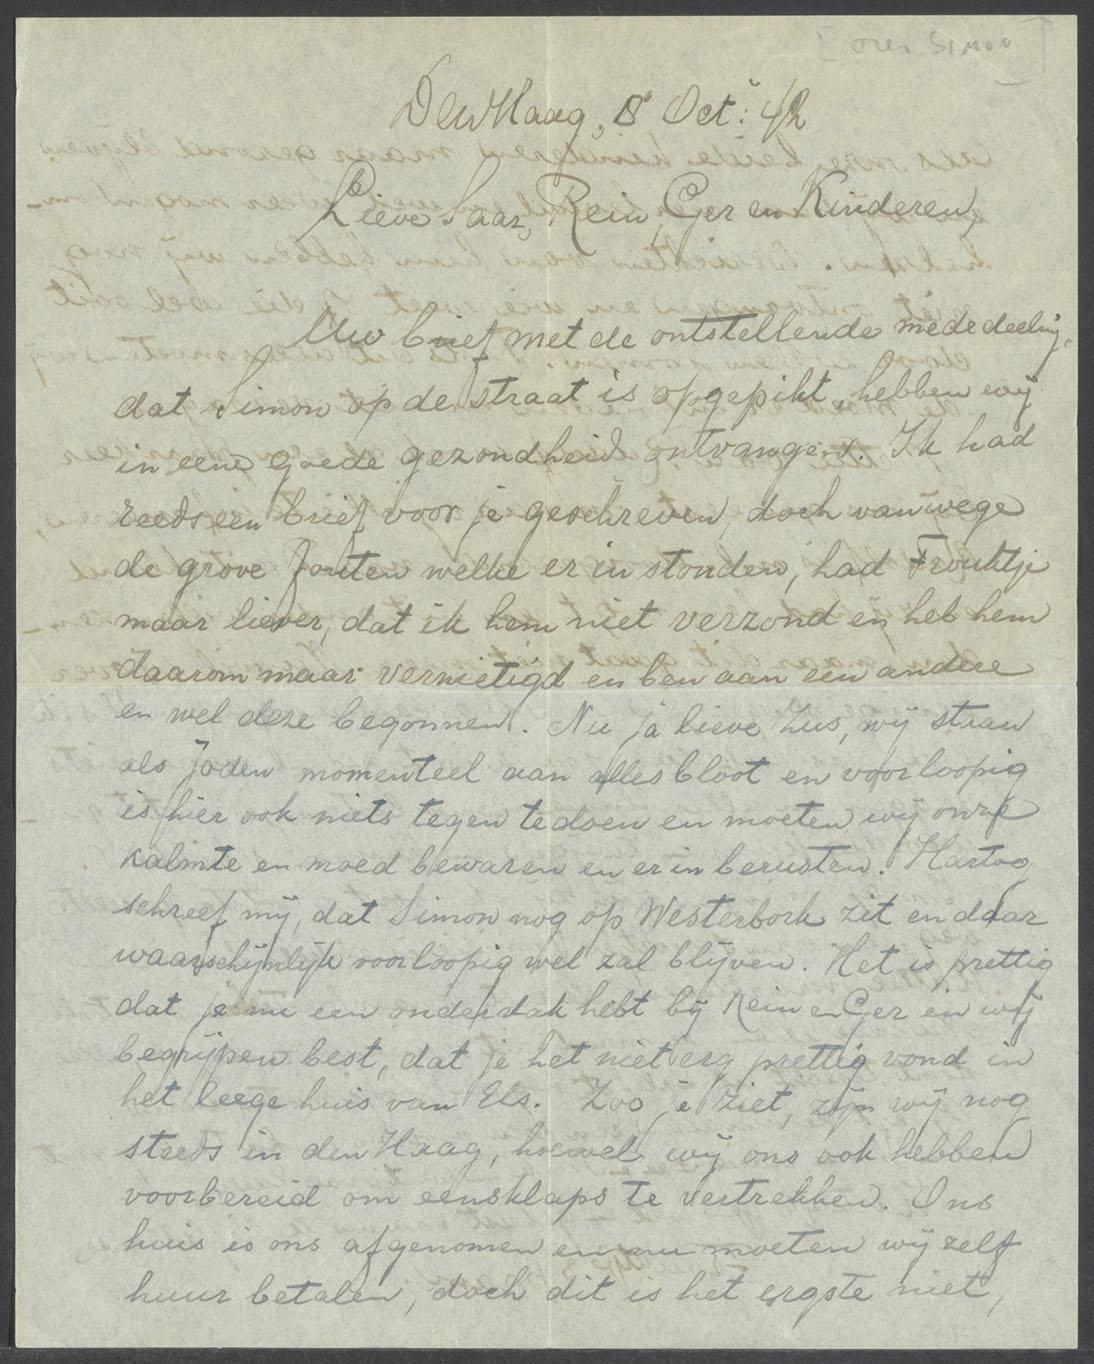 [over Simon]
Den Haag, 8 Oct: 42
Lieve Saar, Rein, Ger en Kinderen,
Uw brief met de ontstellende mededeeling,
dat Simon op de straat is opgepikt, hebben wij
in eene goede gezondheid ontvangen. Ik had
reeds een brief voor je geschreven, doch vanwege
de grove fouten welke er in stonden, had Frouktje
maar liever, dat ik hem niet verzond en heb hem
daarom maar vernietigd en ben aan een andere
en wel deze begonnen. Nu ja lieve Zus, wij staan
als Joden momenteel aan alles bloot en voorloopig
is hier ook niets tegen te doen en moeten wij onze
kalmte en moed bewaren en er in berusten. Hartog
schreef mij, dat Simon nog op Westerbork zit en daar
waarschijnlijk voorloopig wel zal blijven. Het is prettig
dat je nu een onderdak hebt bij Rein en Ger en wij
begrijpen best, dat je het niet erg prettig vond in
het leege huis van Els. Zoo je ziet, zijn wij nog
steeds in den Haag, hoewel wij ons ook hebben
voorbereid om eensklaps te vertrekken. Ons
huis is ons afgenomen en nu moeten wij zelf
huur betalen, doch dit is het ergste niet,